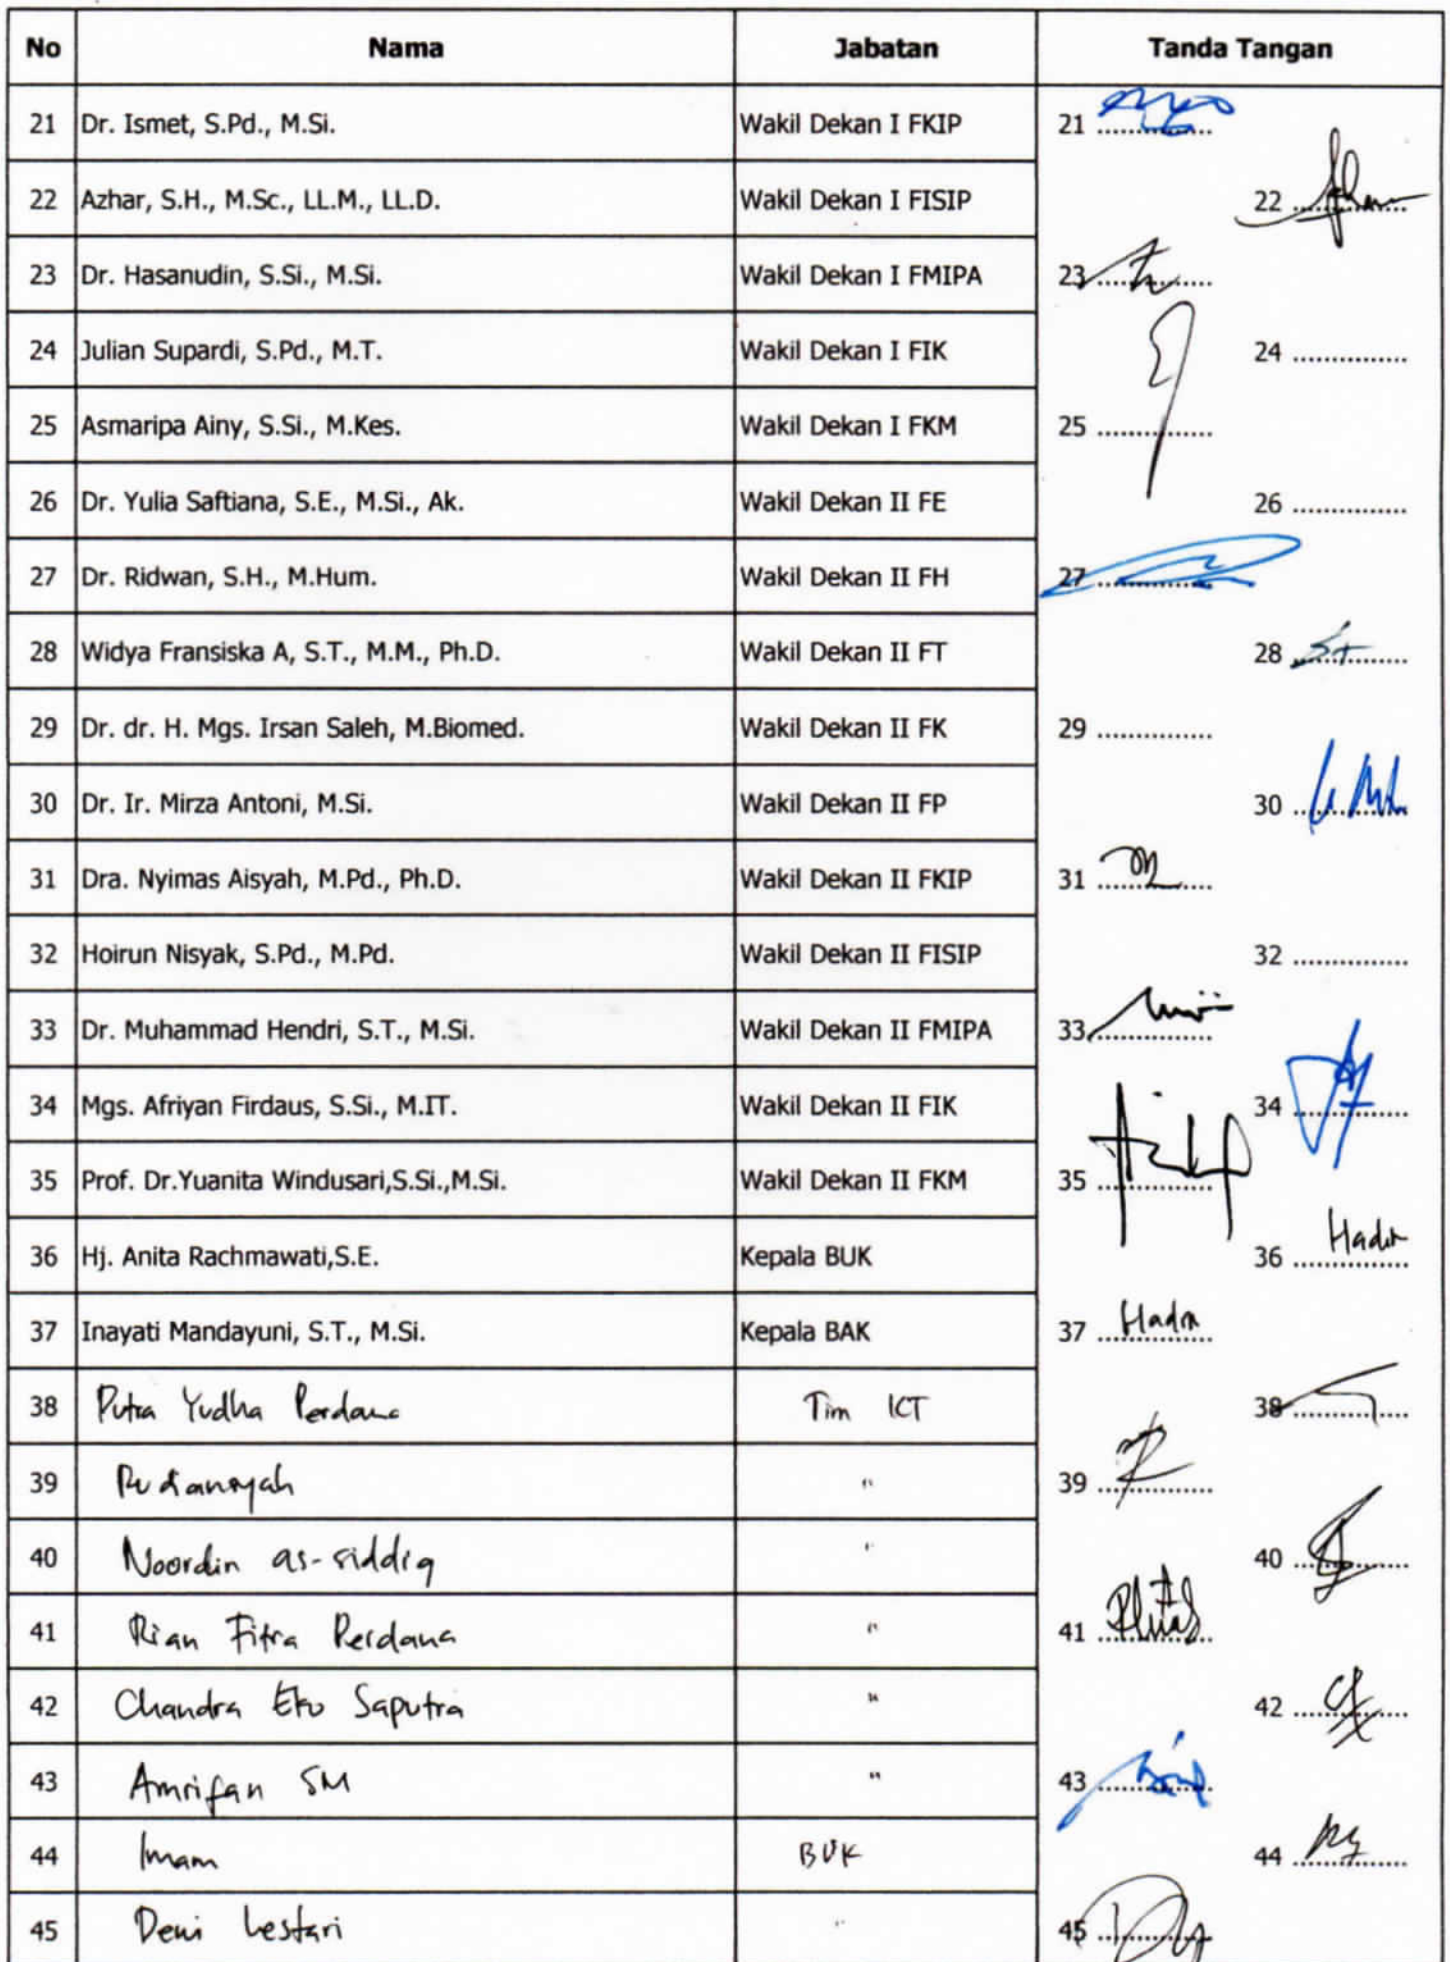 No Nama Jabatan Tanda Tangan
21 Dr. Ismet, S.Pd., M.Si. Wakil Dekan I FKIP 21 ...............
22 Azhar, S.H., M.Sc., LL.M., LL.D. Wakil Dekan I FISIP 22 ...............
23 Dr. Hasanudin, S.Si., M.Si. Wakil Dekan I FMIPA 23 ...............
24 Julian Supardi, S.Pd., M.T. Wakil Dekan I FIK 24 ...............
25 Asmaripa Ainy, S.Si., M.Kes. Wakil Dekan I FKM 25 ...............
26 Dr. Yulia Saftiana, S.E., M.Si., Ak. Wakil Dekan II FE 26 ...............
27 Dr. Ridwan, S.H., M.Hum. Wakil Dekan II FH 27 ...............
28 Widya Fransiska A, S.T., M.M., Ph.D. Wakil Dekan II FT 28 ...............
29 Dr. dr. H. Mgs. Irsan Saleh, M.Biomed. Wakil Dekan II FK 29 ...............
30 Dr. Ir. Mirza Antoni, M.Si. Wakil Dekan II FP 30 ...............
31 Dra. Nyimas Aisyah, M.Pd., Ph.D. Wakil Dekan II FKIP 31 ...............
32 Hoirun Nisyak, S.Pd., M.Pd. Wakil Dekan II FISIP 32 ...............
33 Dr. Muhammad Hendri, S.T., M.Si. Wakil Dekan II FMIPA 33 ...............
34 Mgs. Afriyan Firdaus, S.Si., M.IT. Wakil Dekan II FIK 34 ...............
35 Prof. Dr.Yuanita Windusari,S.Si.,M.Si. Wakil Dekan II FKM 35 ...............
36 Hj. Anita Rachmawati,S.E. Kepala BUK 36 ............... Hadir
37 Inayati Mandayuni, S.T., M.Si. Kepala BAK 37 ............... Hadir
38 Putra Yudha Perdana Tim ICT 38 ...............
39 Rudiansyah " 39 ...............
40 Noordin as-siddiq " 40 ...............
41 Rian Fitra Perdana " 41 ...............
42 Chandra Eko Saputra " 42 ...............
43 Amrifan SM " 43 ...............
44 Imam BUK 44 ...............
45 Deni Lestari " 45 ...............